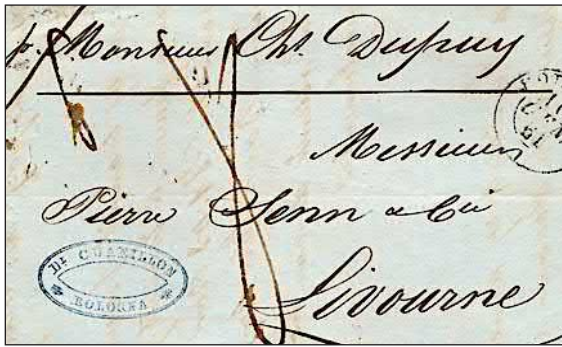 p. Monsieur Chs. Dupuy
Messieurs
Pierre Senn & Cie
Livourne
BOLOGNA